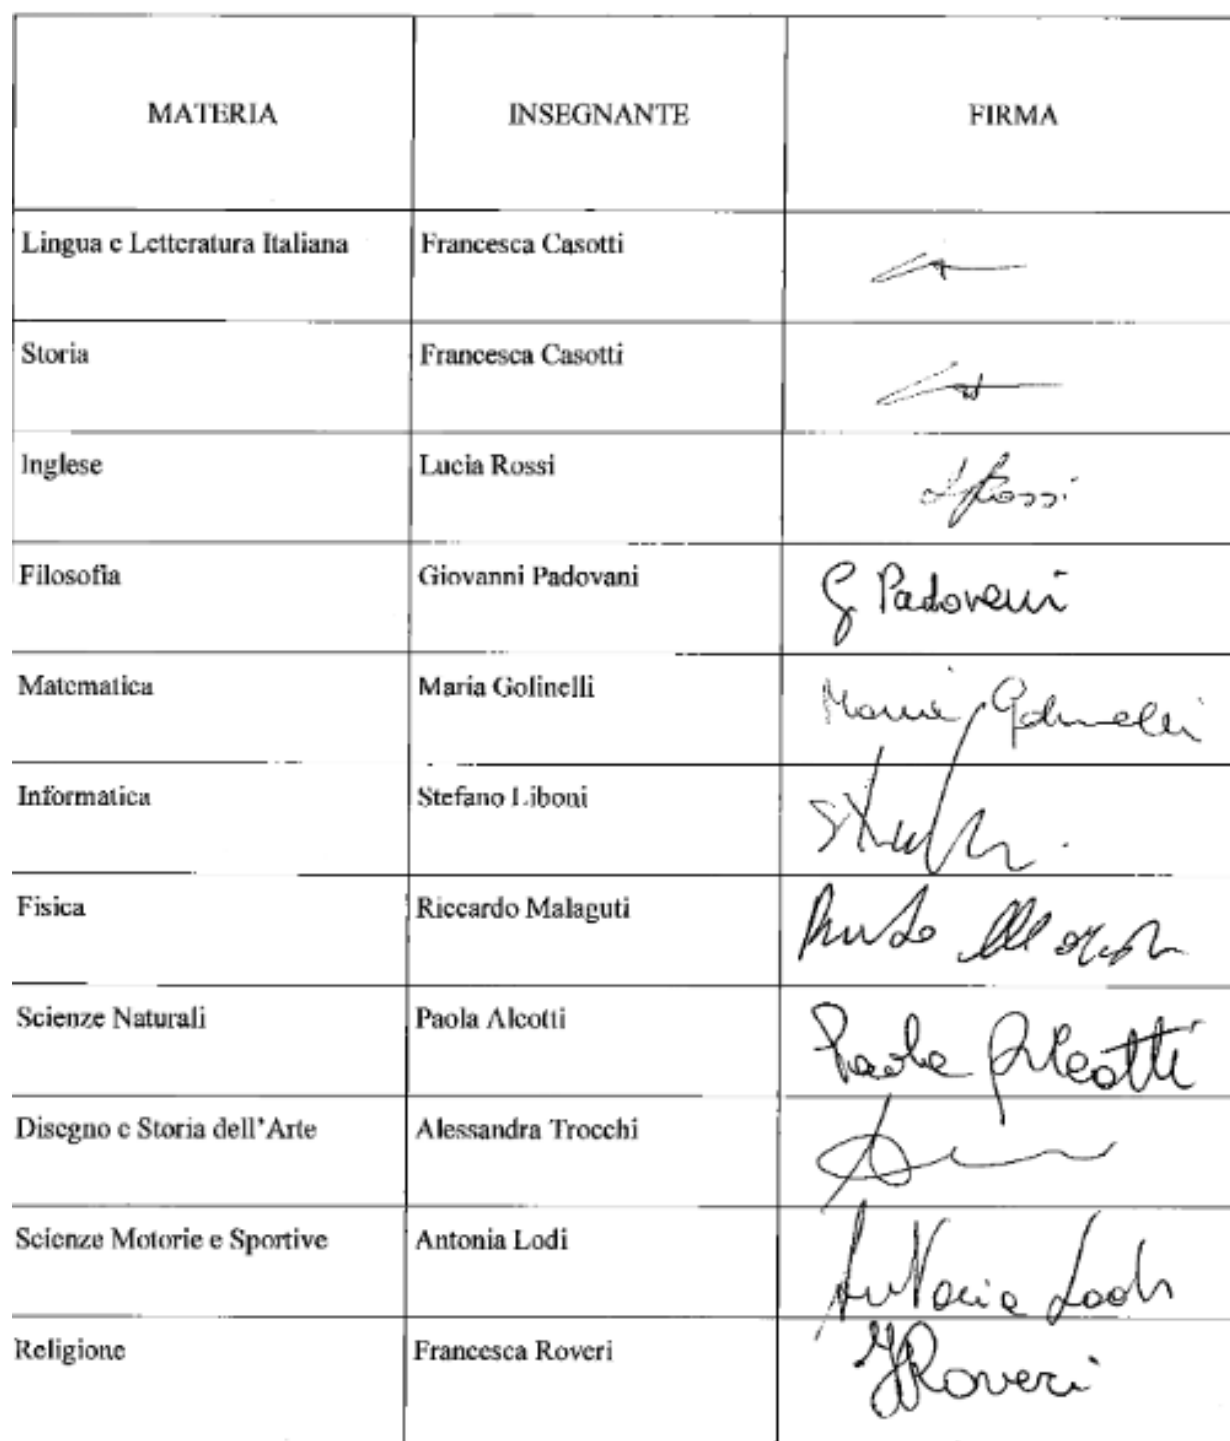 MATERIA INSEGNANTE FIRMA
Lingua e Letteratura Italiana Francesca Casotti
Storia Francesca Casotti
Inglese Lucia Rossi LRossi
Filosofia Giovanni Padovani G Padovani
Matematica Maria Golinelli Maria Golinelli
Informatica Stefano Liboni
Fisica Riccardo Malaguti
Scienze Naturali Paola Alcotti Paola Aleotti
Disegno e Storia dell'Arte Alessandra Trocchi
Scienze Motorie e Sportive Antonia Lodi Antonia Lodi
Religione Francesca Roveri FRoveri